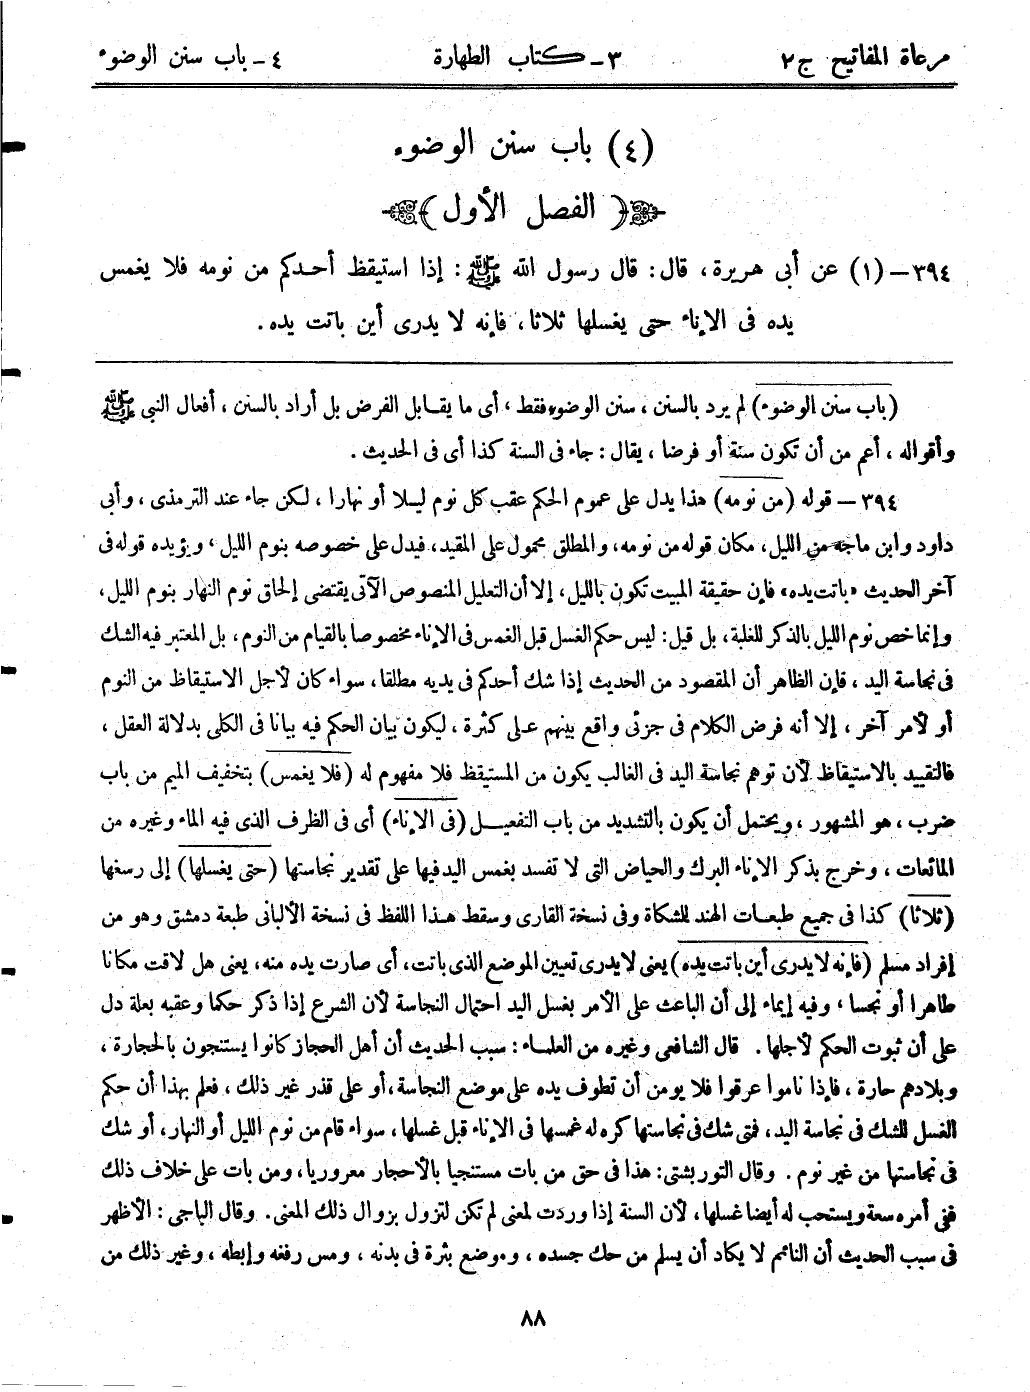 مرعاة المفاتيح ج٢ ٣ـ كتاب الطهارة ٤ ـ باب سنن الوضوء
(٤) باب سنن الوضوء
﴿ الفصل الأول ﴾
٣٩٤ – (١) عن أبى هريرة، قال: قال رسول الله ﷺ: إذا استيقظ أحدكم من نومه فلا يغمس
يده فى الإناء حتى يغسلها ثلاثا، فإنه لا يدرى أين باتت يده.
(باب سنن الوضوء) لم يرد بالسنن، سنن الوضوء فقط، أى ما يقابل الفرض بل أراد بالسنن، أفعال النبى ﷺ
وأقواله، أعم من أن تكون سنة أو فرضا، يقال: جاء فى السنة كذا أى فى الحديث.
٣٩٤ – قوله (من نومه) هذا يدل على عموم الحكم عقب كل نوم ليلا أو نهارا، لكن جاء عند الترمذى، وأبى
داود وابن ماجه من الليل، مكان قوله من نومه، والمطلق محمول على المقيد، فيدل على خصوصه بنوم الليل، ويؤيده قوله فى
آخر الحديث «باتت يده» فإن حقيقة المبيت تكون بالليل، إلا أن التعليل المنصوص الآتى يقتضى إلحاق نوم النهار بنوم الليل،
وإنما خص نوم الليل بالذكر للغلبة، بل قيل: ليس حكم الغسل قبل الغمس فى الإناء مخصوصا بالقيام من النوم، بل المعتبر فيه الشك
فى نجاسة اليد، فإن الظاهر أن المقصود من الحديث إذا شك أحدكم فى يديه مطلقا، سواء كان لأجل الاستيقاظ من النوم
أو لأمر آخر، إلا أنه فرض الكلام فى جزئى واقع بينهم على كثرة، ليكون بيان الحكم فيه بيانا فى الكلى بدلالة العقل،
فالتقييد بالاستيقاظ لأن توهم نجاسة اليد فى الغالب يكون من المستيقظ فلا مفهوم له (فلا يغمس) بتخفيف الميم من باب
ضرب، هو المشهور، ويحتمل أن يكون بالتشديد من باب التفعيل (فى الإناء) أى فى الظرف الذى فيه الماء وغيره من
المائعات، وخرج بذكر الإناء البرك والحياض التى لا تفسد بغمس اليد فيها على تقدير نجاستها (حتى يغسلها) إلى رسغها
(ثلاثا) كذا فى جميع طبعات الهند للمشكاة وفى نسخة القارى وسقط هذا اللفظ فى نسخة الألبانى طبعة دمشق وهو من
إفراد مسلم (فإنه لا يدرى أين باتت يده) يعنى لا يدرى تعيين الموضع الذى باتت، أى صارت يده منه، يعنى هل لاقت مكانا
طاهرا أو نجسا، وفيه إيماء إلى أن الباعث على الأمر بغسل اليد احتمال النجاسة لأن الشرع إذا ذكر حكما وعقبه بعلة دل
على أن ثبوت الحكم لأجلها. قال الشافعى وغيره من العلماء: سبب الحديث أن أهل الحجاز كانوا يستنجون بالحجارة،
وبلادهم حارة، فإذا ناموا عرقوا فلا يومن أن تطوف يده على موضع النجاسة، أو على قذر غير ذلك، فعلم بهذا أن حكم
الغسل للشك فى نجاسة اليد، فمتى شك فى نجاستها كره له غمسها فى الإناء قبل غسلها، سواء قام من نوم الليل أو النهار، أو شك
فى نجاستها من غير نوم. وقال التوربشتى: هذا فى حق من بات مستنجيا بالأحجار معروريا، ومن بات على خلاف ذلك
ففى أمره سعة ويستحب له أيضا غسلها، لأن السنة إذا وردت لمعنى لم تكن لتزول بزوال ذلك المعنى. وقال الباجى: الأظهر
فى سبب الحديث أن النائم لا يكاد أن يسلم من حك جسده، وموضع بثرة فى بدنه، ومس رفغه وإبطه، وغير ذلك من
٨٨